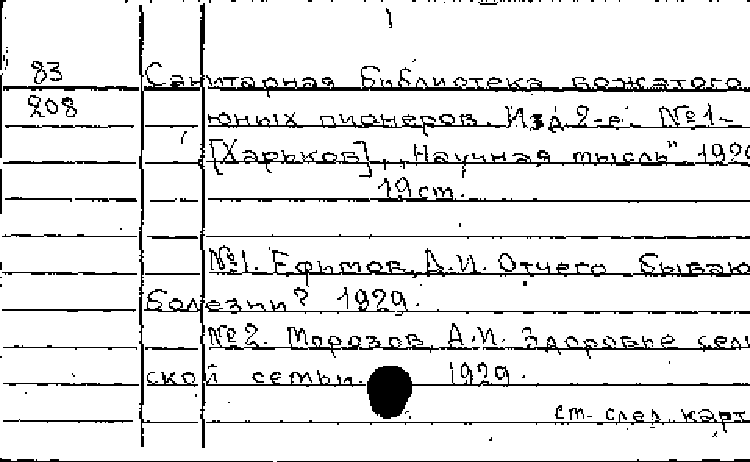 1
83 Санитарная библиотека вожатого
208 юных пионеров. Изд. 2-е. № 1-
[Харьков], „Научная мысль" 1929
19 см.
№1. Ефимов, А.И. Отчего бываю
болезни? 1929.
№2. Морозов, А.И. Здоровье сель
ской семьи. 1929.
см. след. карт